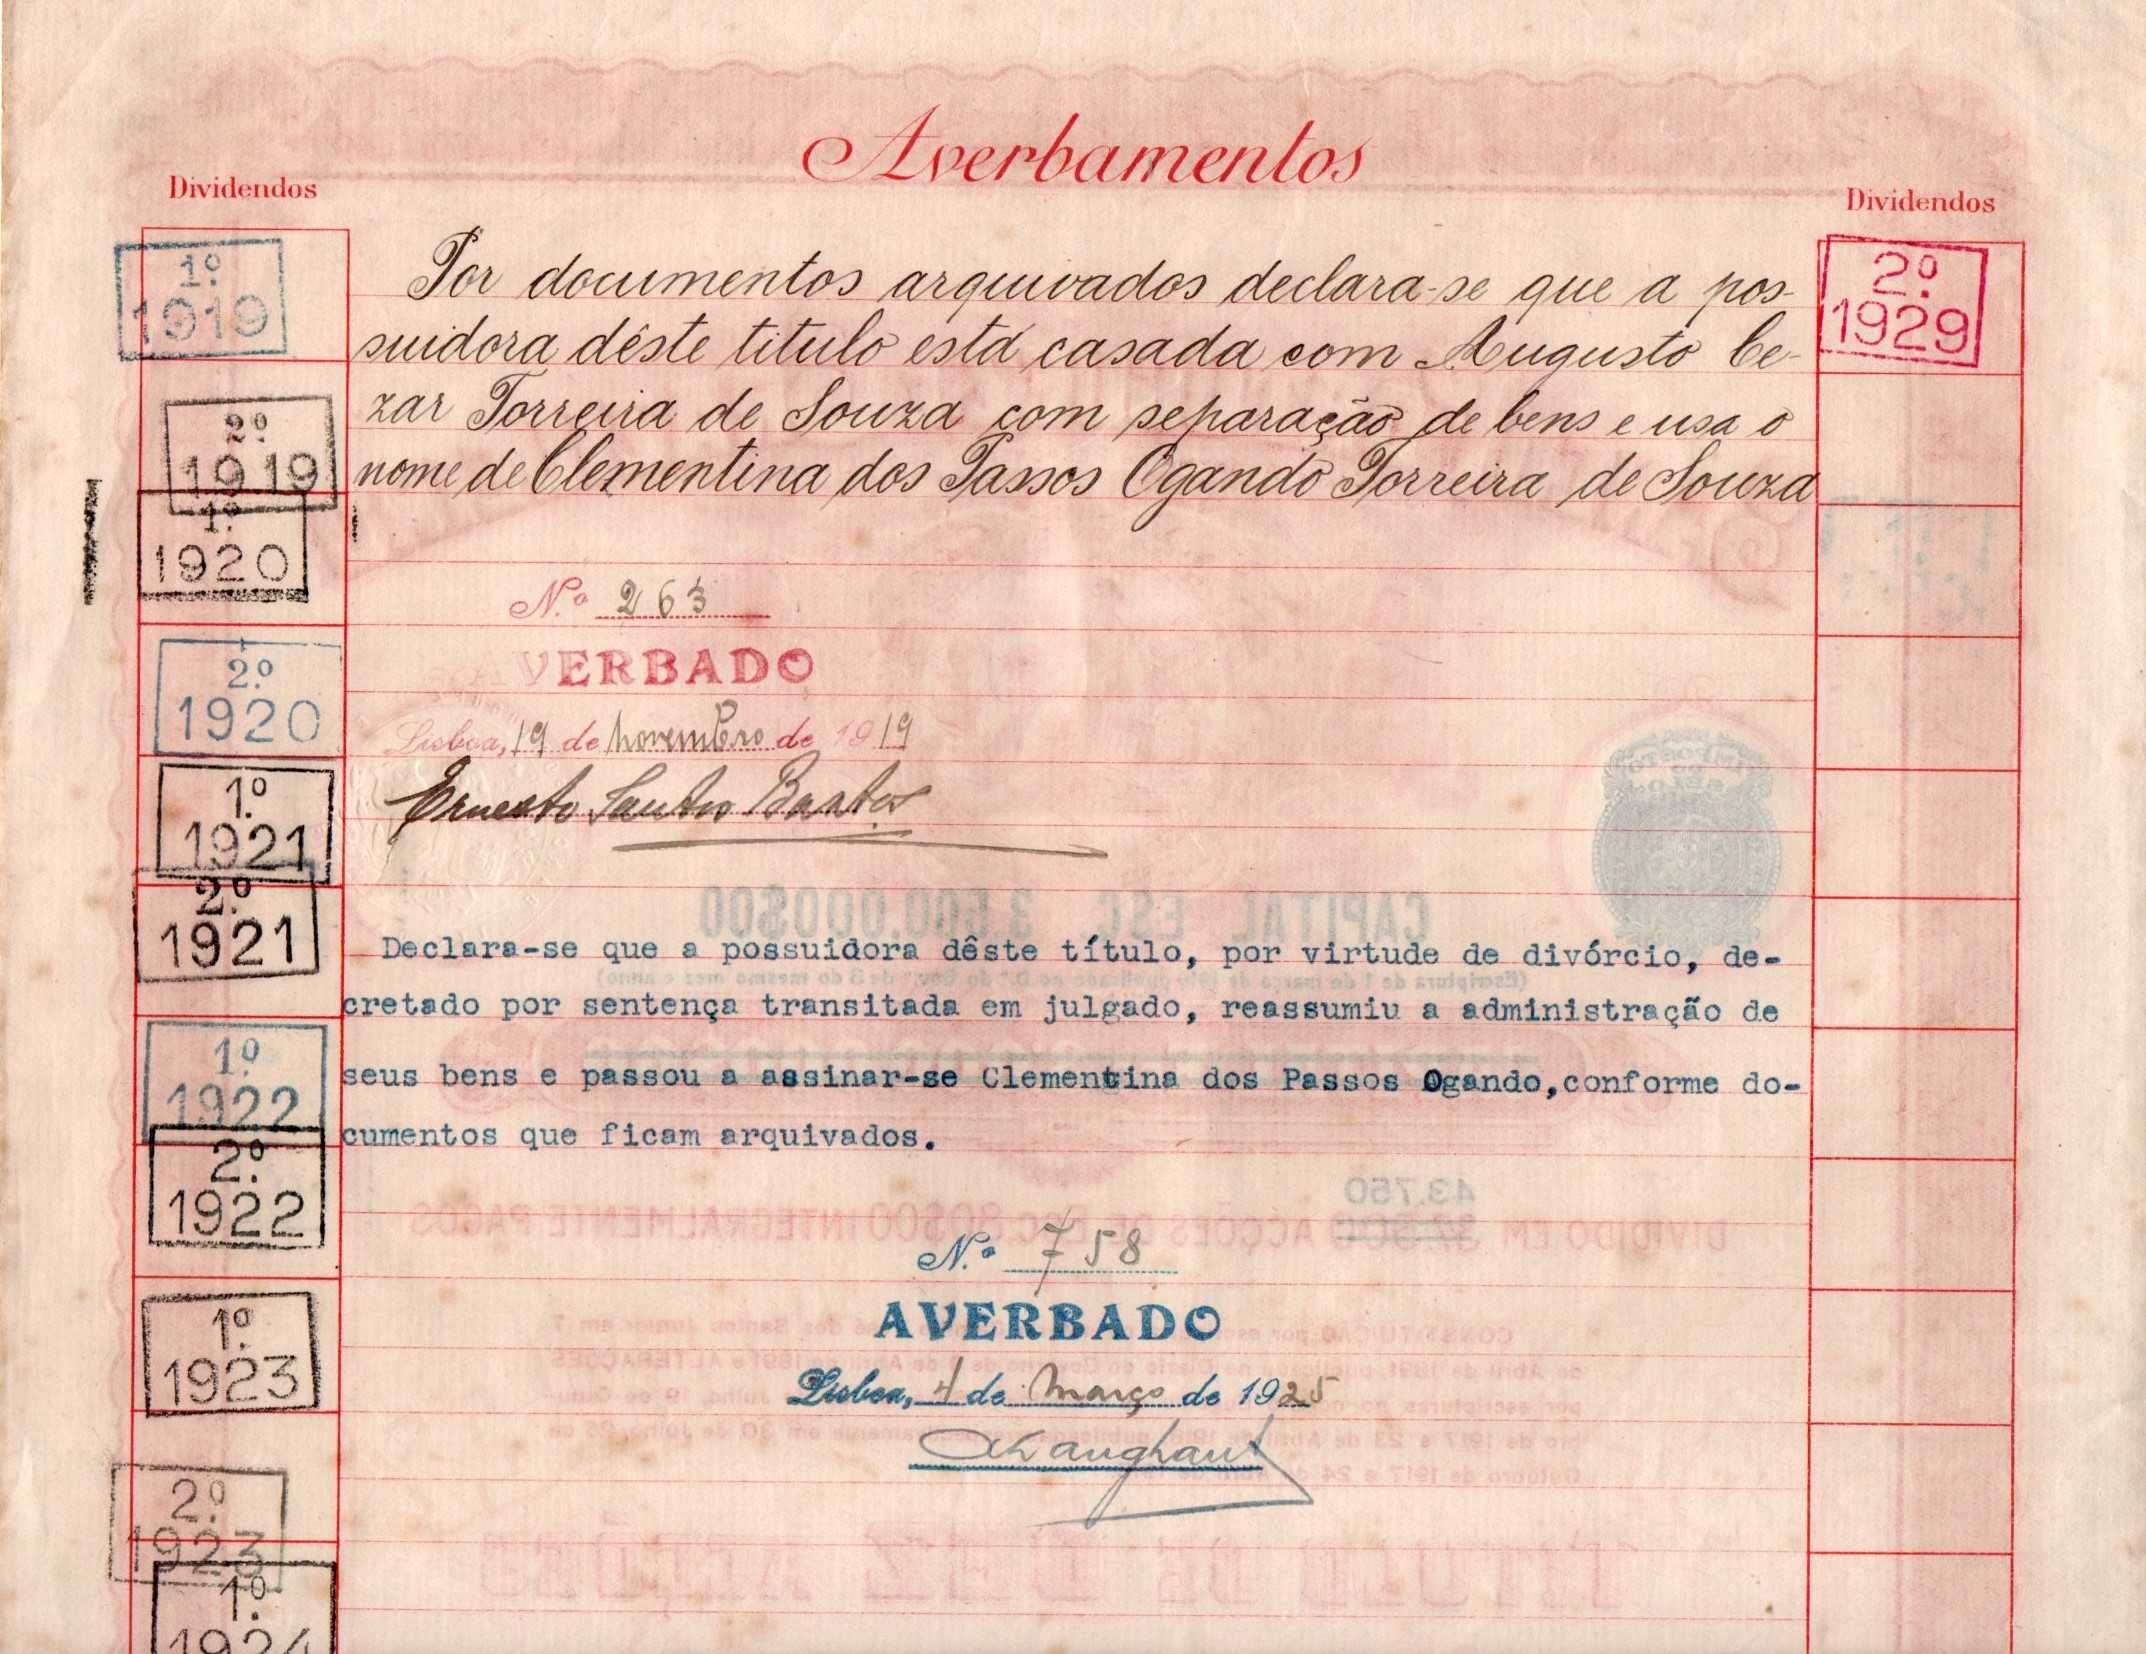 Averbamentos
Dividendos
Dividendos
1º
1919
2º
1919
1º
1920
2º
1920
1º
1921
2º
1921
1º
1922
2º
1922
1º
1923
2º
1923
1º
1924
2º
1929
Por documentos arquivados declara-se que a pos-
suidora dêste titulo está casada com Augusto Ce-
zar Torreira de Souza com separação de bens e usa o
nome de Clementina dos Passos Ogando Torreira de Souza
N.º 263
AVERBADO
Lisboa, 19 de novembro de 1919
Ernesto Santos Bastos
CAPITAL ESC. 3.500.000$00
Declara-se que a possuidora dêste título, por virtude de divórcio, de-
cretado por sentença transitada em julgado, reassumiu a administração de
seus bens e passou a assinar-se Clementina dos Passos Ogando, conforme do-
cumentos que ficam arquivados.
43.750
DIVIDIDO EM 37.500 ACÇÕES DE ESC. 80$00 INTEGRALMENTE PAGOS
N.º 758
AVERBADO
Lisboa, 4 de março de 1925
TITULO DE DEZ ACÇÕES